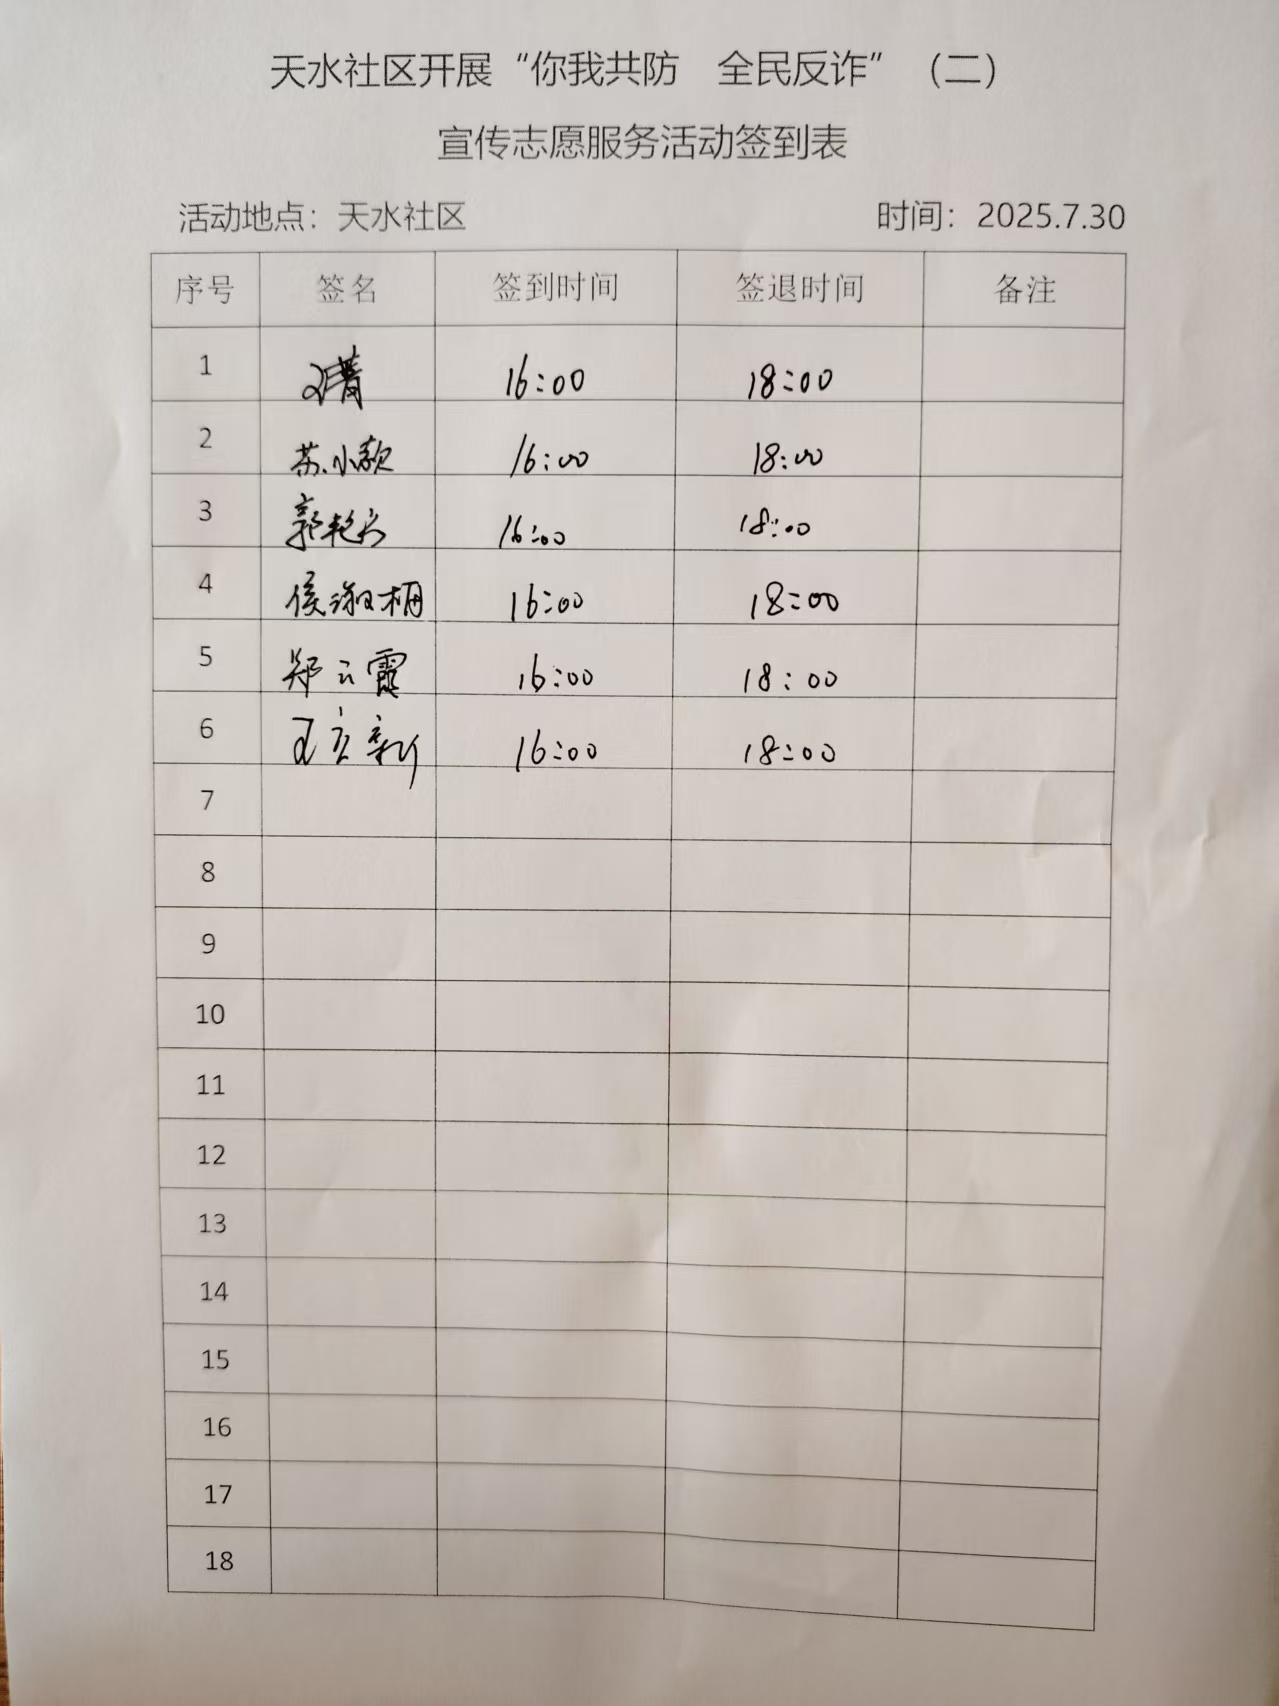 天水社区开展“你我共防 全民反诈”（二）
宣传志愿服务活动签到表
活动地点：天水社区 时间：2025.7.30
序号 签名 签到时间 签退时间 备注
1 16:00 18:00
2 苏小款 16:00 18:00
3 郭艳 16:00 18:00
4 侯淑梅 16:00 18:00
5 郑云霞 16:00 18:00
6 王宏新 16:00 18:00
7
8
9
10
11
12
13
14
15
16
17
18